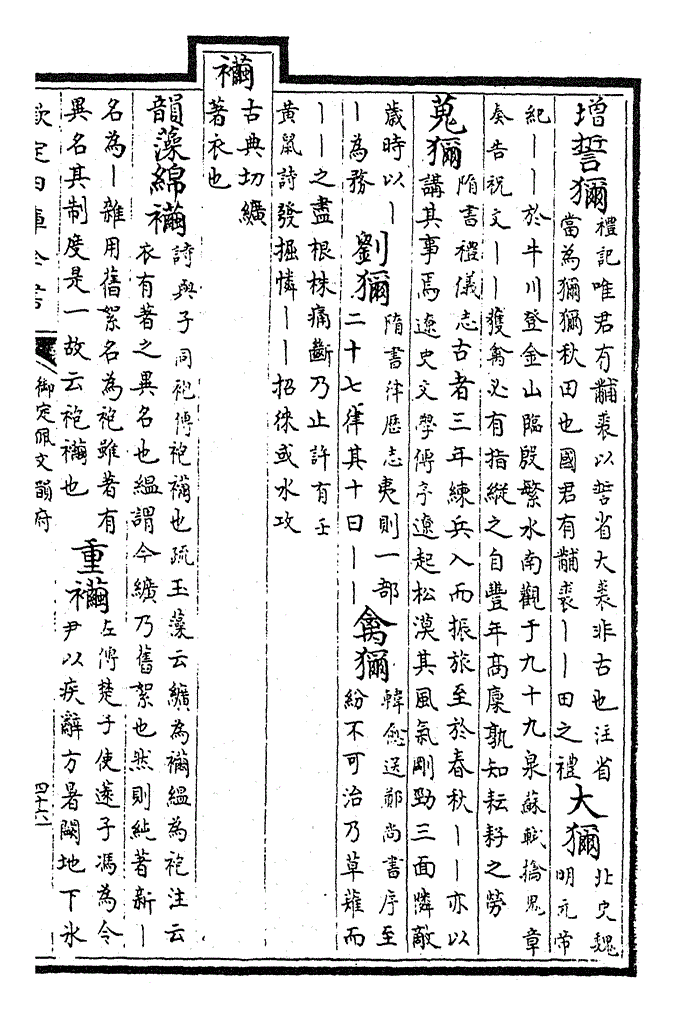 增誓獮
禮記唯君有黼裘以誓省大裘非古也注省
當為獮獮秋田也國君有黼裘丨丨田之禮
大獮
北史魏
明元帝
紀丨丨於牛川登金山臨殷繁水南觀于九十九泉蘇軾擒鬼章
奏告祝文丨丨獲禽必有指縱之自豐年高廩孰知耘耔之勞
蒐獮
隋書禮儀志古者三年練兵入而振旅至於春秋丨丨亦以
講其事焉遼史文學傳序遼起松漠其風氣剛勁三面隣敵
歲時以丨
丨為務
劉獮
隋書律歷志夷則一部
二十七律其十曰丨丨
禽獮
韓愈送鄭尚書序至
紛不可治乃草薙而
丨丨之盡根株痛斷乃止許有壬
黃鼠詩發掘憐丨丨招徠或水攻
襺
古典切纊
著衣也
韻藻綿襺
詩與子同袍傳袍襺也疏玉藻云纊為襺縕為袍注云
衣有著之異名也縕謂今纊乃舊絮也然則純著新丨
名為丨雜用舊絮名為袍雖著有
異名其制度是一故云袍襺也
重襺
左傳楚子使薳子馮為令
尹以疾辭方暑闕地下氷
欽定四庫全書
御定佩文韻府
四十六